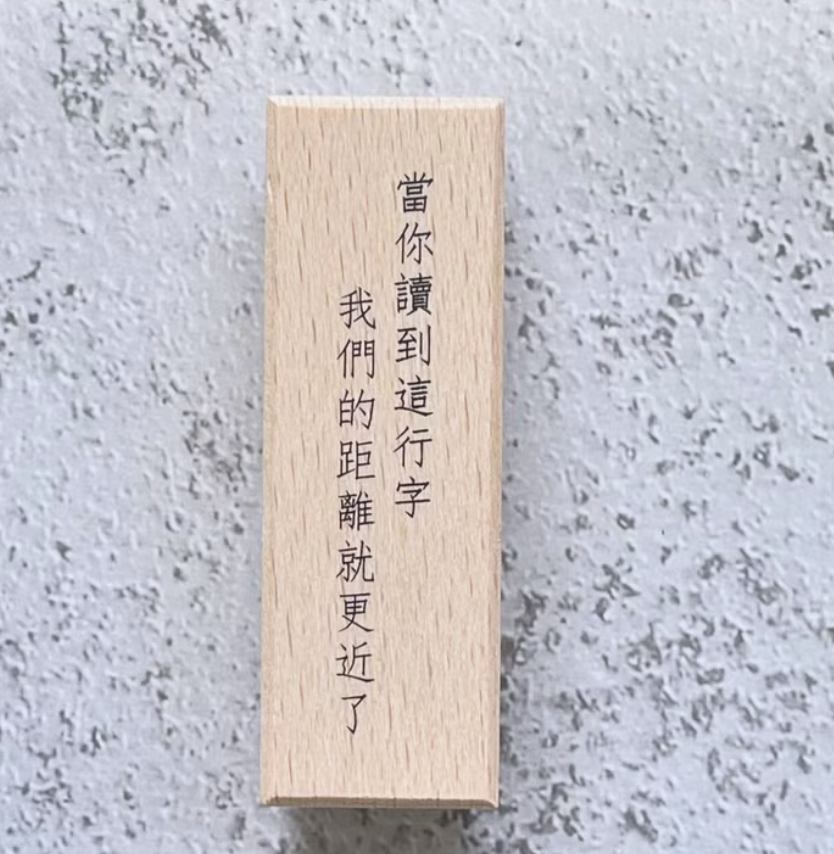 當你讀到這行字
我們的距離就更近了